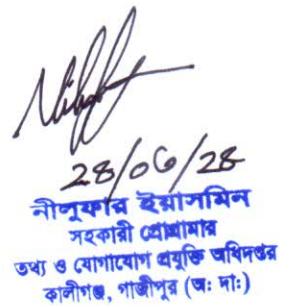 ২৪/০৬/২৪
নীলুফার ইয়াসমিন
সহকারী প্রোগ্রামার
তথ্য ও যোগাযোগ প্রযুক্তি অধিদপ্তর
কালীগঞ্জ, গাজীপুর (অ: দা:)